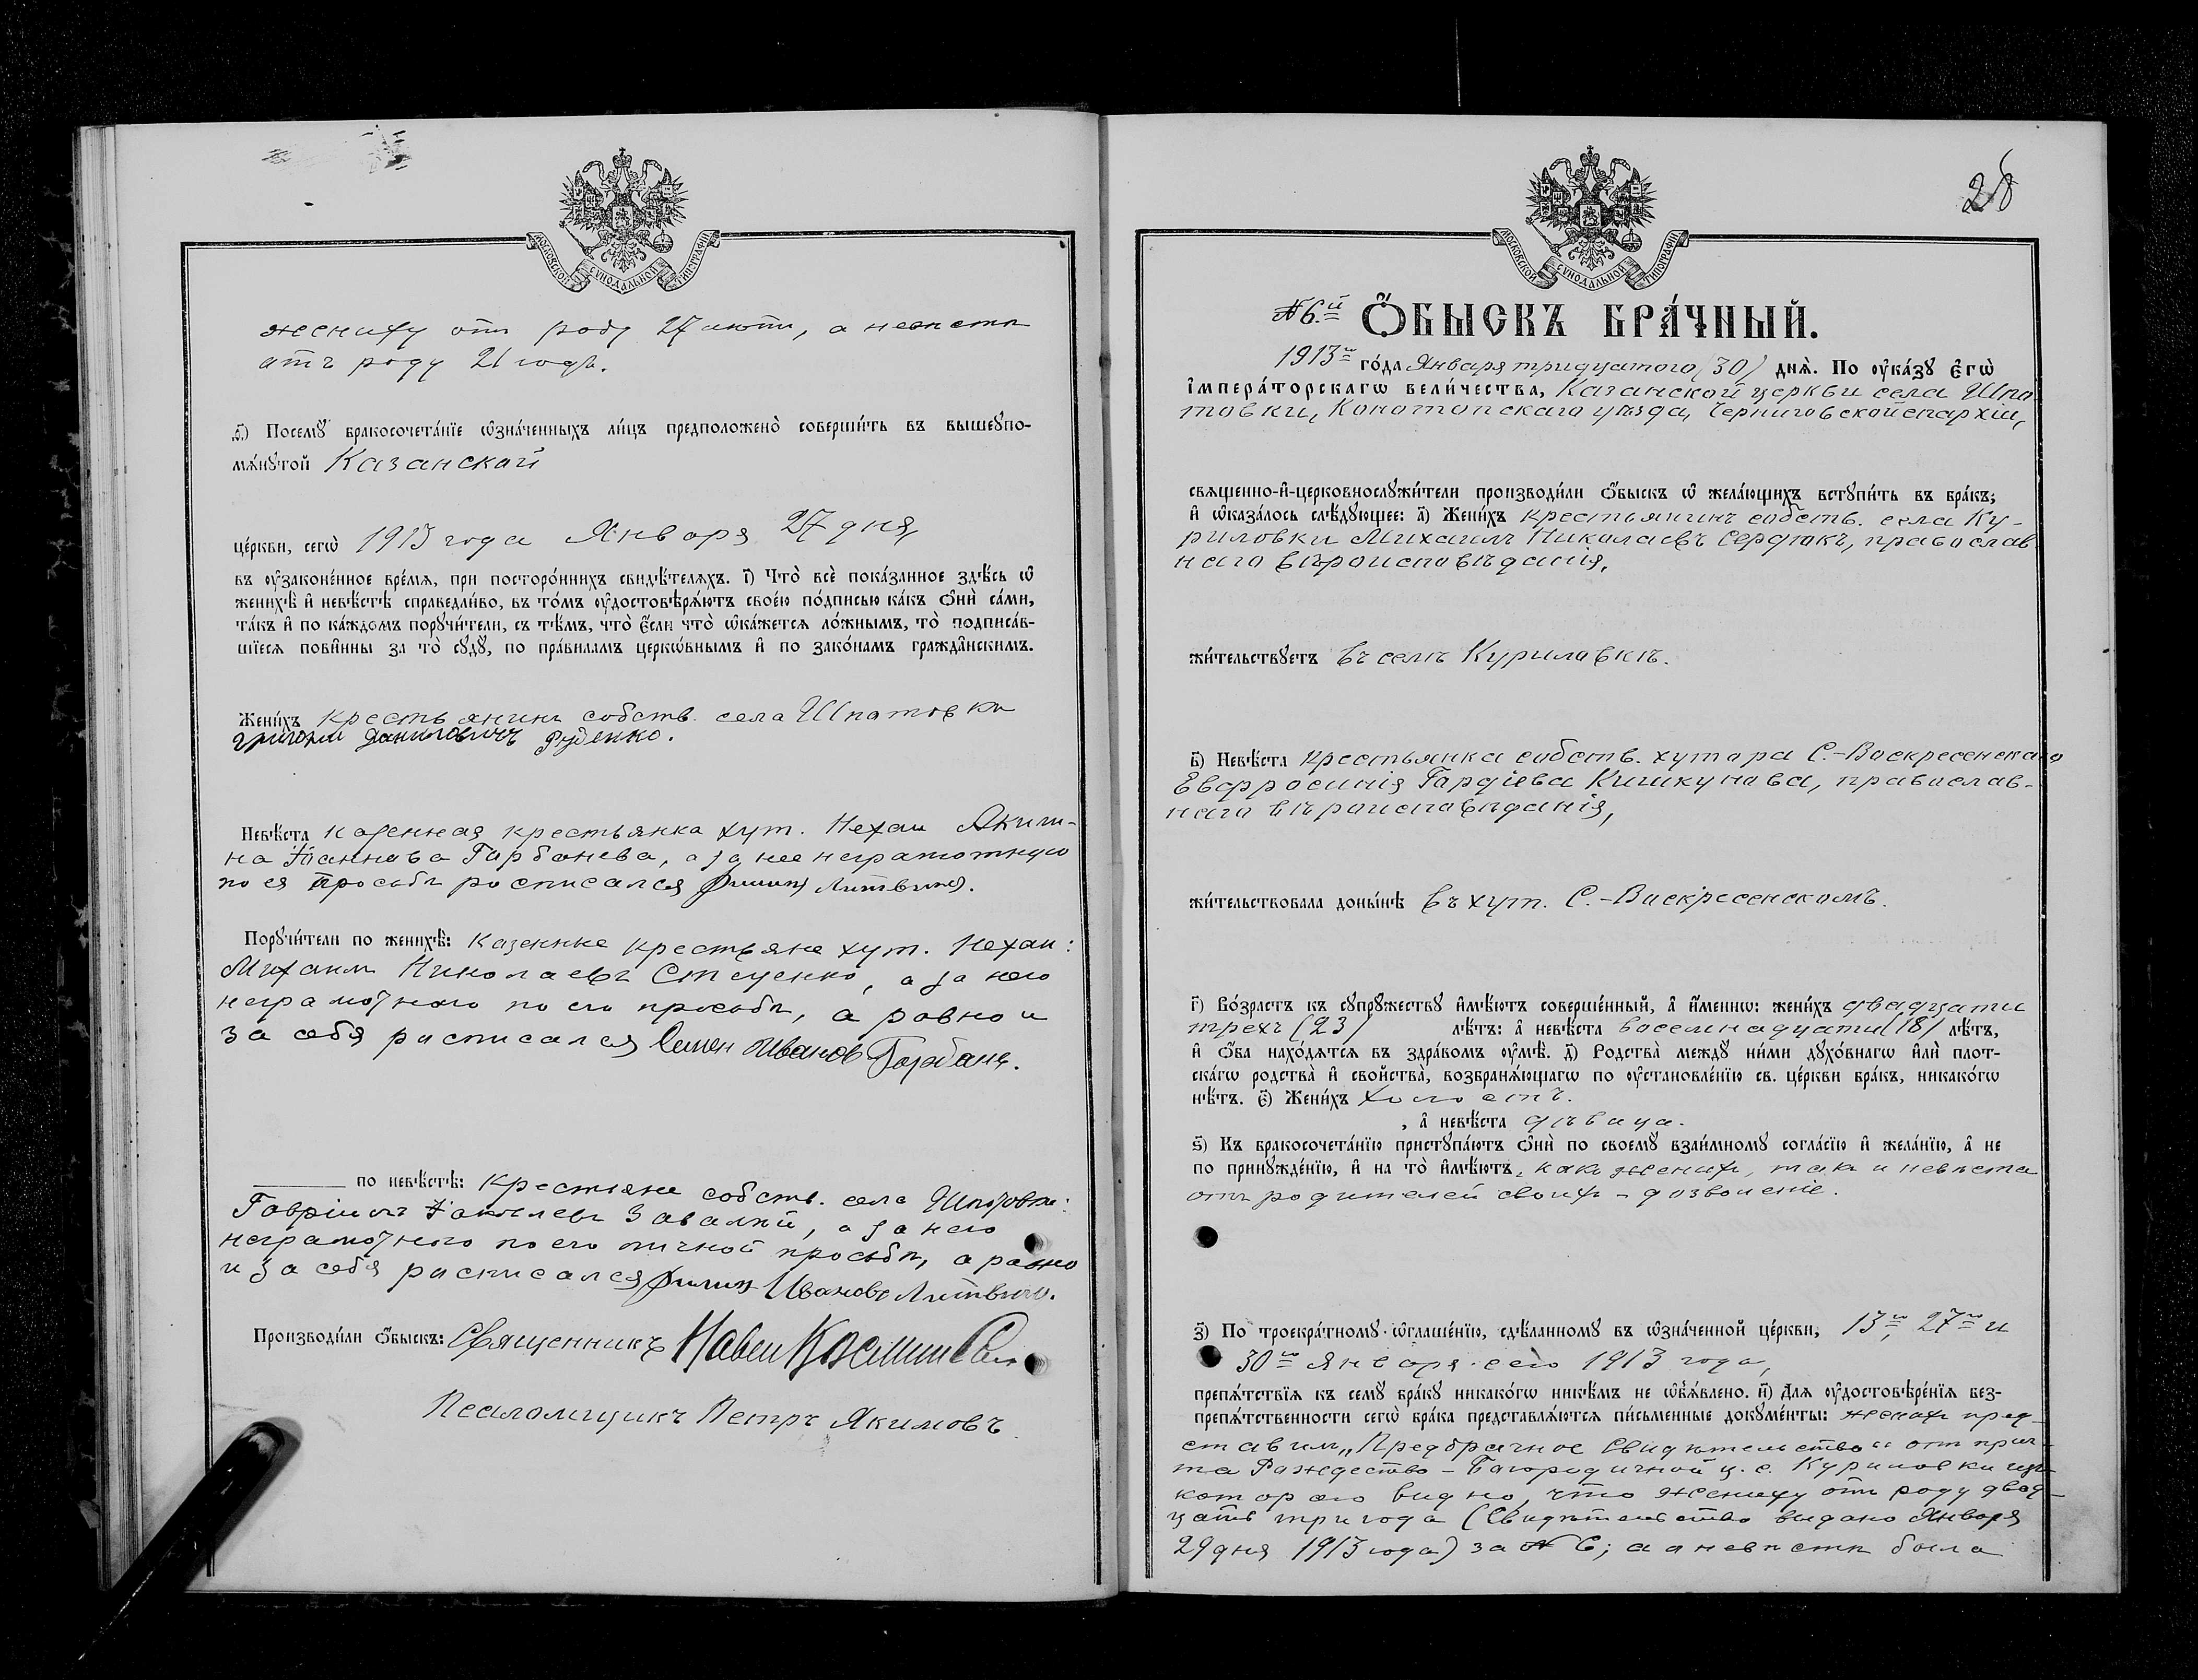 МОСКОВСКОЙ СѴНОДАЛЬНОЙ ТИПОГРАФІИ
жениху отъ роду 27 лѣтъ, а невѣстѣ
отъ роду 21 годъ.
Посемꙋ̀ бракосочета́нїе ѡ҆зна́ченныхъ ли́цъ предположено̀ соверши́ть въ вышеꙋпо-
мѧ́нꙋтой Казанской
це́ркви, сегѡ̀ 1913 года Января 27 дня,
въ оу҆законе́нное вре́мѧ, при посторо́ннихъ свидѣ́телѧхъ. і҃) Что̀ всѐ пока́занное здѣ́сь ѡ҆
женихѣ̀ и҆ невѣ́стѣ справедли́во, въ то́мъ оу҆достовѣрѧ́ютъ свое́ю по́дписью ка́къ ѻ҆нѝ са́ми,
та́къ и҆ по ка́ждомъ порꙋчи́тели, съ тѣ́мъ, что̀ є҆́сли что̀ ѡ҆ка́жетсѧ ло́жнымъ, то̀ подписа́в-
шїесѧ пови́нны за то̀ сꙋдꙋ̀, по пра́виламъ церко́внымъ и҆ по зако́намъ гражда́нскимъ.
Жени́хъ крестьянинъ собств. села Шпатовки
Григорій Даниловичъ Руденко.
Невѣ́ста казенная крестьянка хут. Нехаи Акили-
на Іоаннова Горбанева, а за нее неграмотную
по ея просьбѣ росписался Филипъ Литвинъ.
Порꙋчи́тели по женихѣ̀: казенные крестьяне хут. Нехаи:
Михаилъ Николаевъ Стеценко, а за него
неграмотного по его просьбѣ, а равно и
за себя росписался Семен Иванов Горбань.
по невѣ́стѣ: крестьяне собств. села Шпатовки:
Гавріилъ Іаковлевъ Завалій, а за него
неграмотного по его личной просьбѣ, а равно
и за себя росписался Филипъ Ивановъ Литвинъ.
Производи́ли ѻ҆́быскъ: Священникъ Павел
Псаломщикъ Петръ Якимовъ
28
МОСКОВСКОЙ СѴНОДАЛЬНОЙ ТИПОГРАФІИ
№ 6.й Ѻ҆́БЫСКЪ БРА́ЧНЫЙ.
1913го го́да Января тридцатого (30) днѧ̀. По оу҆ка́зꙋ є҆гѡ̀
і҆мпера́торскагѡ вели́чества, Казанской церкви села Шпа-
товки, Конотопскаго уѣзда, Черниговской епархіи,
свѧще́нно-и҆-церковнослꙋжи́тели производи́ли ѻ҆́быскъ ѡ҆ жела́ющихъ встꙋпи́ть въ бра́къ;
и҆ ѡ҆каза́лось слѣ́дꙋющее: а҃) Жени́хъ крестьянинъ собств. села Ку-
риловки Михаилъ Николаевъ Сердюкъ, православ-
наго вѣроисповѣданія,
жи́тельствꙋетъ въ селѣ Куриловкѣ.
в҃) Невѣ́ста крестьянка собств. хутора С.-Воскресенскаго
Евфросинія Гордіева Кишкунова, православ-
наго вѣроисповѣданія,
жи́тельствовала доны́нѣ въ хут. С.-Воскресенскомъ.
г҃) Во́зрастъ къ сꙋпрꙋ́жествꙋ и҆мѣ́ютъ соверше́нный, а҆ и҆́меннѡ: жени́хъ двадцати
трехъ (23) лѣ́тъ: а҆ невѣ́ста восемнадцати (18) лѣ́тъ,
и҆ ѻ҆́ба нахо́дѧтсѧ въ здра́вомъ оу҆мѣ̀. д҃) Родства̀ междꙋ̀ ни́ми дꙋхо́внагѡ и҆лѝ плот-
ска́гѡ родства̀ и҆ свойства̀, возбранѧ́ющагѡ по оу҆становле́нїю св. це́ркви бра́къ, никако́гѡ
нѣ́тъ. є҃) Жени́хъ холостъ.
, а҆ невѣ́ста дѣвица.
ѕ҃) Къ бракосочета́нїю пристꙋпа́ютъ ѻ҆нѝ по своемꙋ̀ взаи́мномꙋ согла́сїю и҆ жела́нїю, а҆ не
по принꙋжде́нїю, и҆ на то̀ и҆мѣ́ютъ, какъ женихъ, такъ и невѣста
отъ родителей своихъ - дозволеніе.
з҃) По троекра́тномꙋ ѡ҆глаше́нїю, сдѣ́ланномꙋ въ ѡ҆зна́ченной це́ркви, 13го, 27го и
30го Января сего 1913 года,
препѧ́тствїѧ къ семꙋ̀ бра́кꙋ никако́гѡ никѣ́мъ не ѡ҆б̾ѧ́влено. и҃) Длѧ оу҆достовѣре́нїѧ без-
препѧ́тственности сегѡ̀ бра́ка представлѧ́ютсѧ пи́сьменные докꙋме́нты: женихъ пред-
ставилъ „Предбрачное Свидѣтельство“ отъ прич-
та Рождество-Богородичной ц. с. Куриловки изъ
которого видно, что жениху отъ роду двад-
цать три года (Свидѣтельство выдано Января
29 дня 1913 года) за № 6; а о невѣстѣ была